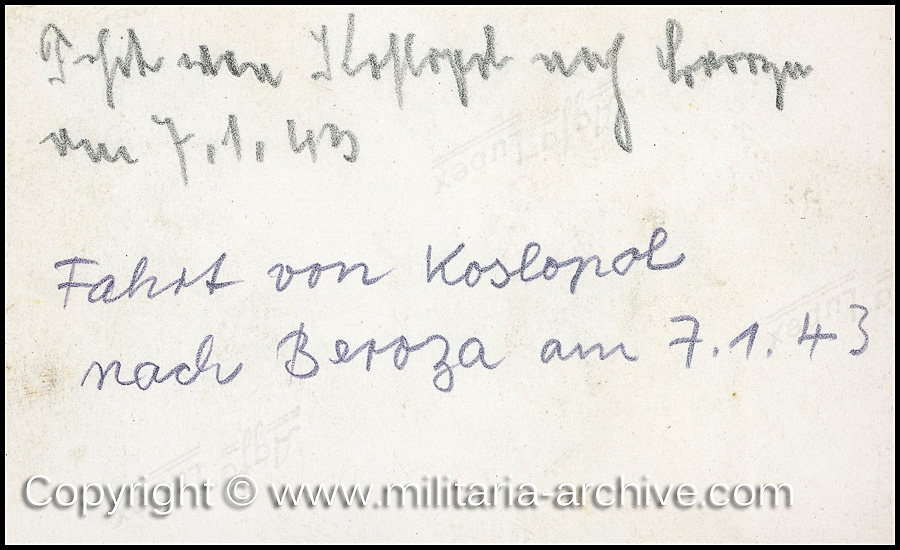 Fahrt von Koslopol nach Beroza
am 7.1.43
Fahrt von Koslopol
nach Beroza am 7.1.43
Copyright © www.militaria-archive.com